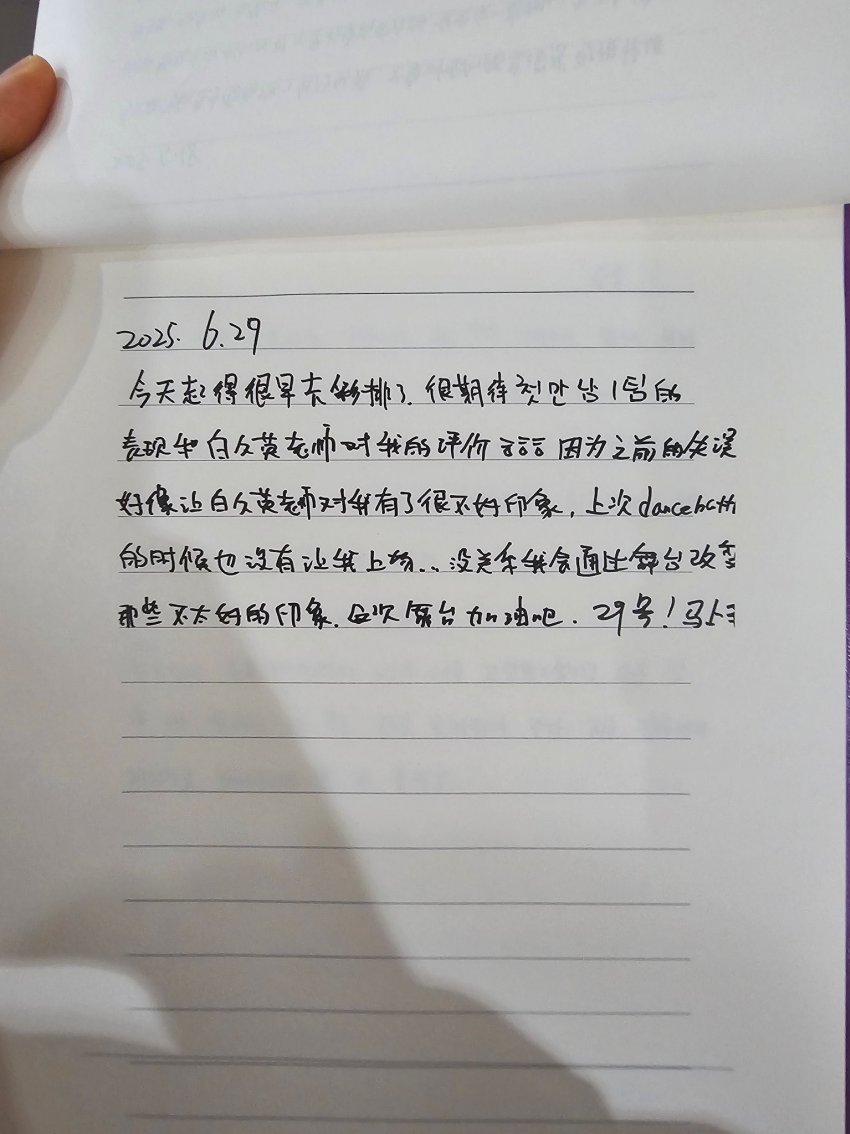 2025. 6.29
今天起得很早去彩排了. 很期待 1팀的
表现和白久英老师对我的评价 ㅎㅎㅎ 因为之前的失误
好像让白久英老师对我有了很不好印象, 上次 dance batt
的时候也没有让我上场.. 没关系我会通过舞台改变
那些不太好的印象. 这次舞台加油吧. 29号! 马上